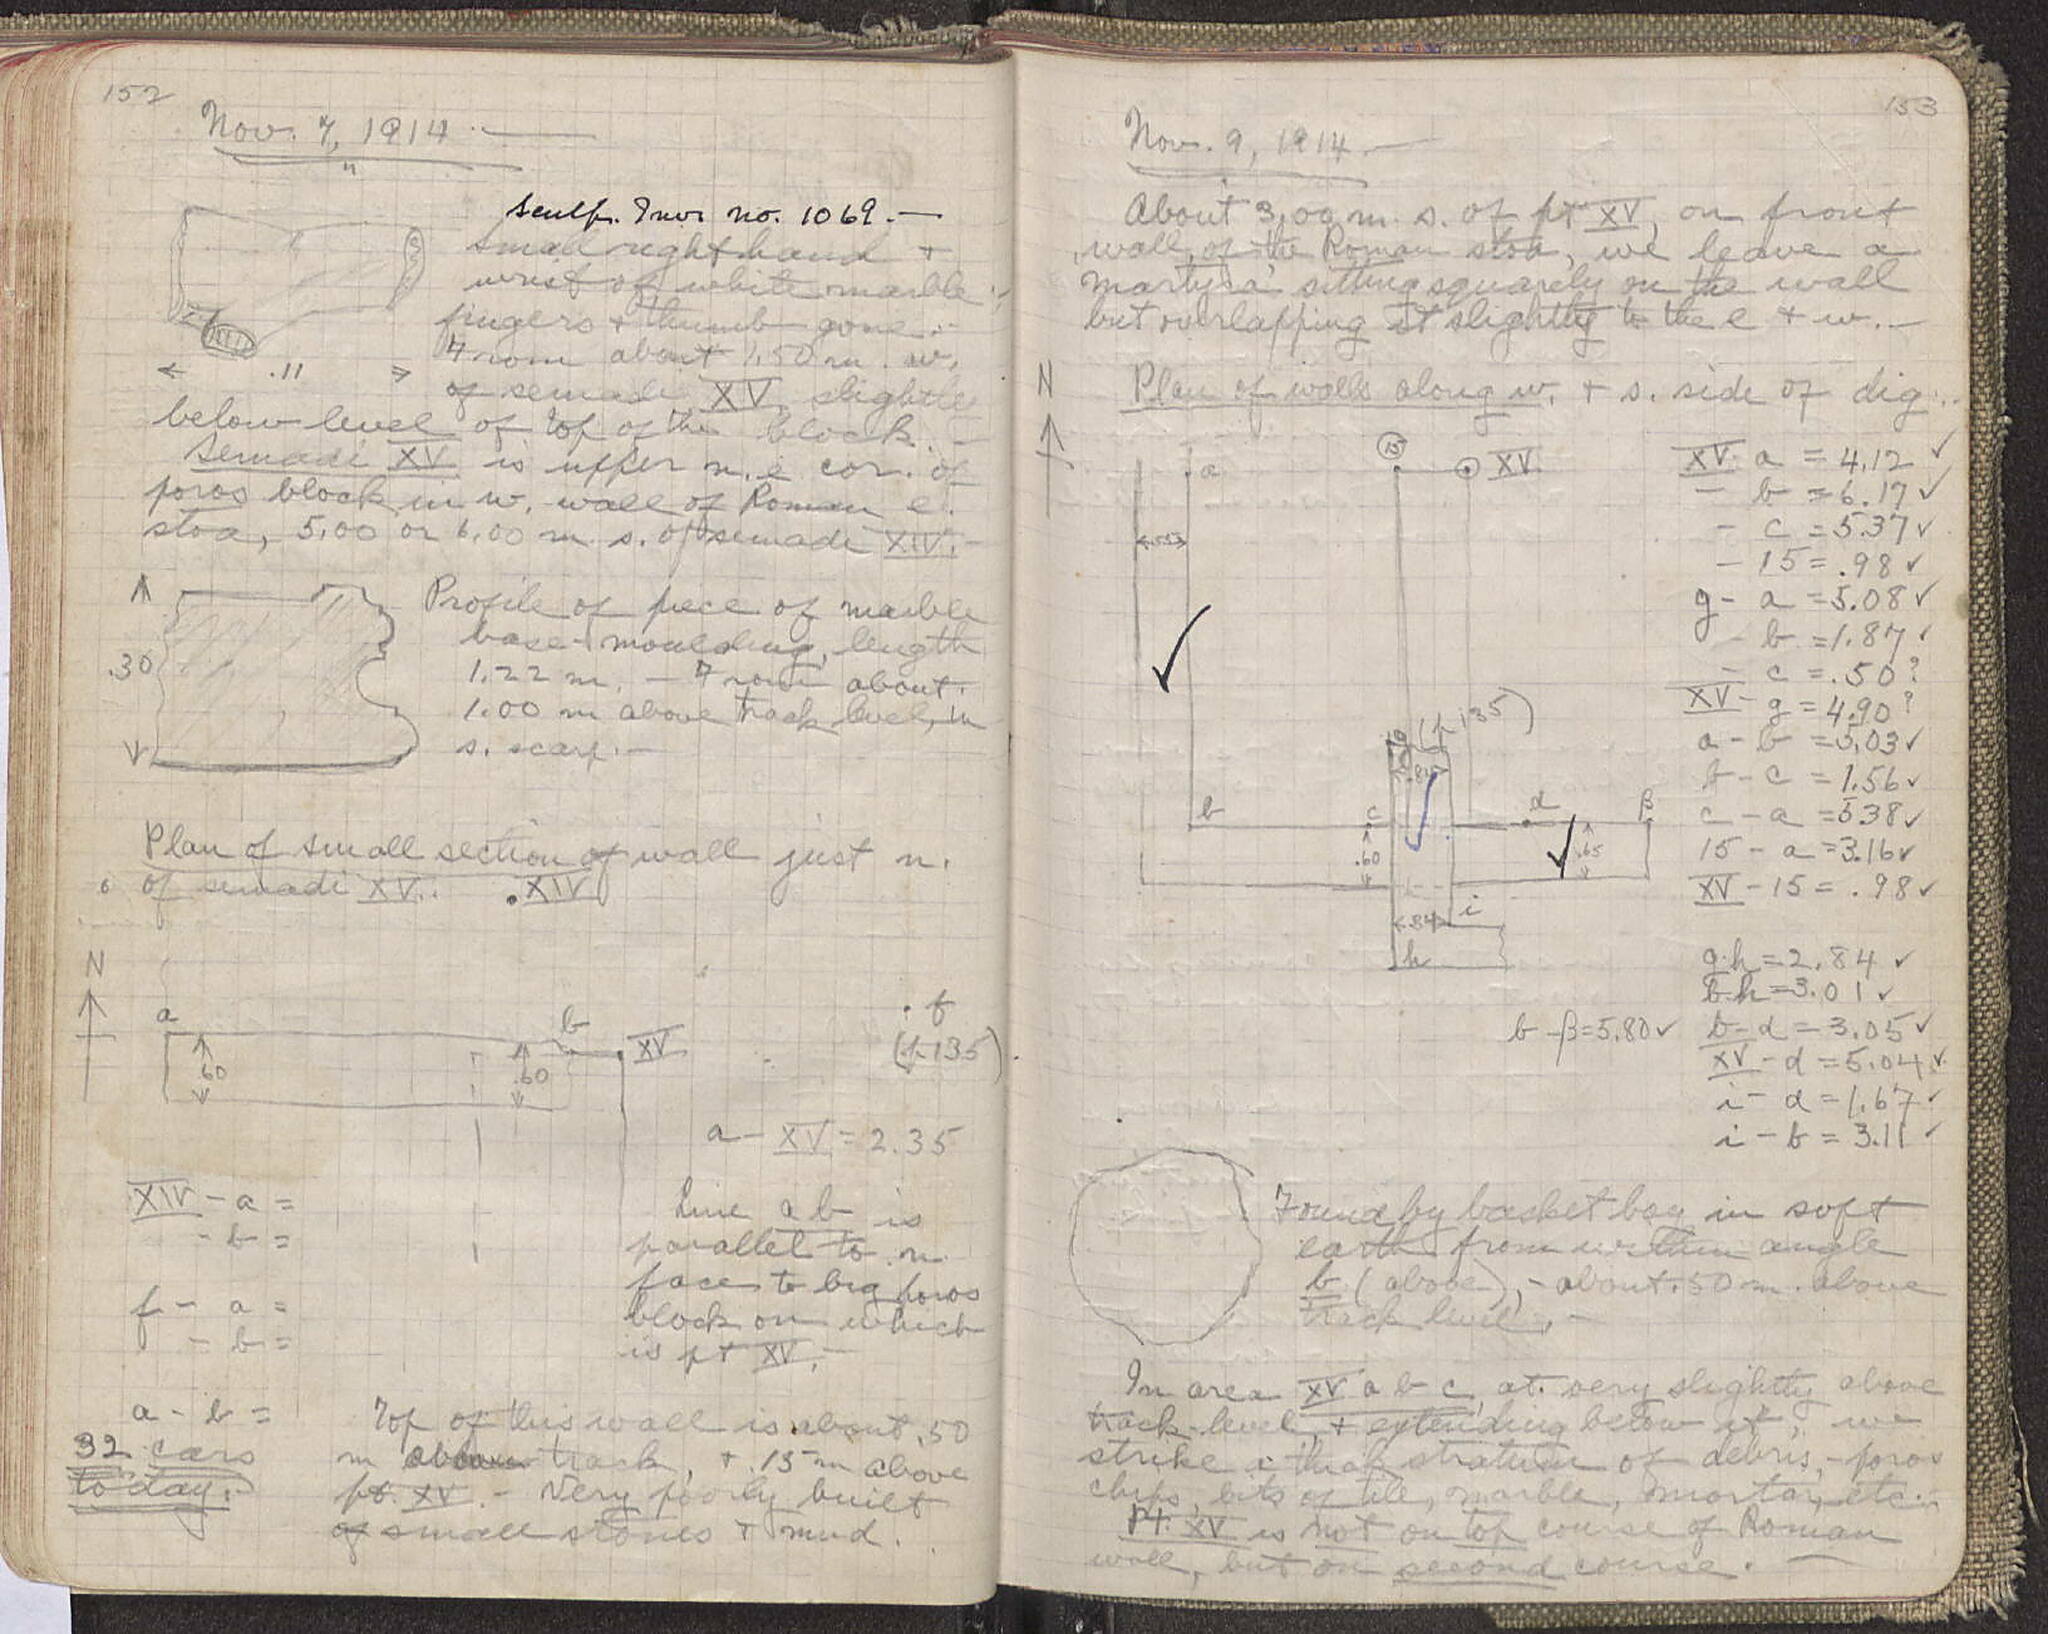 152
Nov. 7, 1914.—
"
Sculp. Inv. no. 1069.—
Small right hand +
wrist of white marble;
fingers + thumb gone.—
From about 1.50 m. w.
of semadi XV, slightly
.11
below level of top of the block.—
Semadi XV is upper n.e cor. of
poros block in w. wall of Roman e.
stoa, 5.00 or 6.00 m. s. of semadi XIV.—
Profile of piece of marble
base-moulding, length
1.22 m. — From about
1.00 m above track level, in
s. scarp.—
.30
Plan of small section of wall just n.
of semadi XV. . XIV
N
a
b
XV
.60
.60
. f
(p 135)
a — XV = 2.35
XIV — a =
- b =
f — a =
- b =
a - b =
Line a b is
parallel to n.
face to big poros
block on which
is pt XV.—
32 cars
today.
Top of this wall is about .50
m above track, + .15 m above
pt. XV. — Very poorly built
of small stones + mud.
153
Nov. 9, 1914.—
About 3.00 m. s. of pt XV, on front
wall of the Roman stoa, we leave a
'martyra' sitting squarely on the wall
but overlapping it slightly to the e + w.—
N
Plan of walls along w. + s. side of dig.
a
15
XV
.55
g
(p 135)
.84
b
c
d
β
.60
.65
.84
i
h
XV - a = 4.12 ✓
- b = 6.17 ✓
- c = 5.37 ✓
- 15 = .98 ✓
g - a = 5.08 ✓
- b = 1.87 ✓
- c = .50 ?
XV - g = 4.90 ?
a - b = 5.03 ✓
b - c = 1.56 ✓
c - a = 5.38 ✓
15 - a = 3.16 ✓
XV - 15 = .98 ✓
g-h = 2.84 ✓
b-h = 3.01 ✓
b - β = 5.80 ✓
b - d = 3.05 ✓
XV - d = 5.04 ✓
i - d = 1.67 ✓
i - b = 3.11 ✓
Found by basket boy in soft
earth from within angle
b (above), - about .50 m. above
track level.—
In area XV a b c, at very slightly above
track-level, + extending below it, we
strike a thick stratum of debris, - poros
chips, bits of tile, marble, mortar, etc.—
Pt. XV is not on top course of Roman
wall, but on second course.—